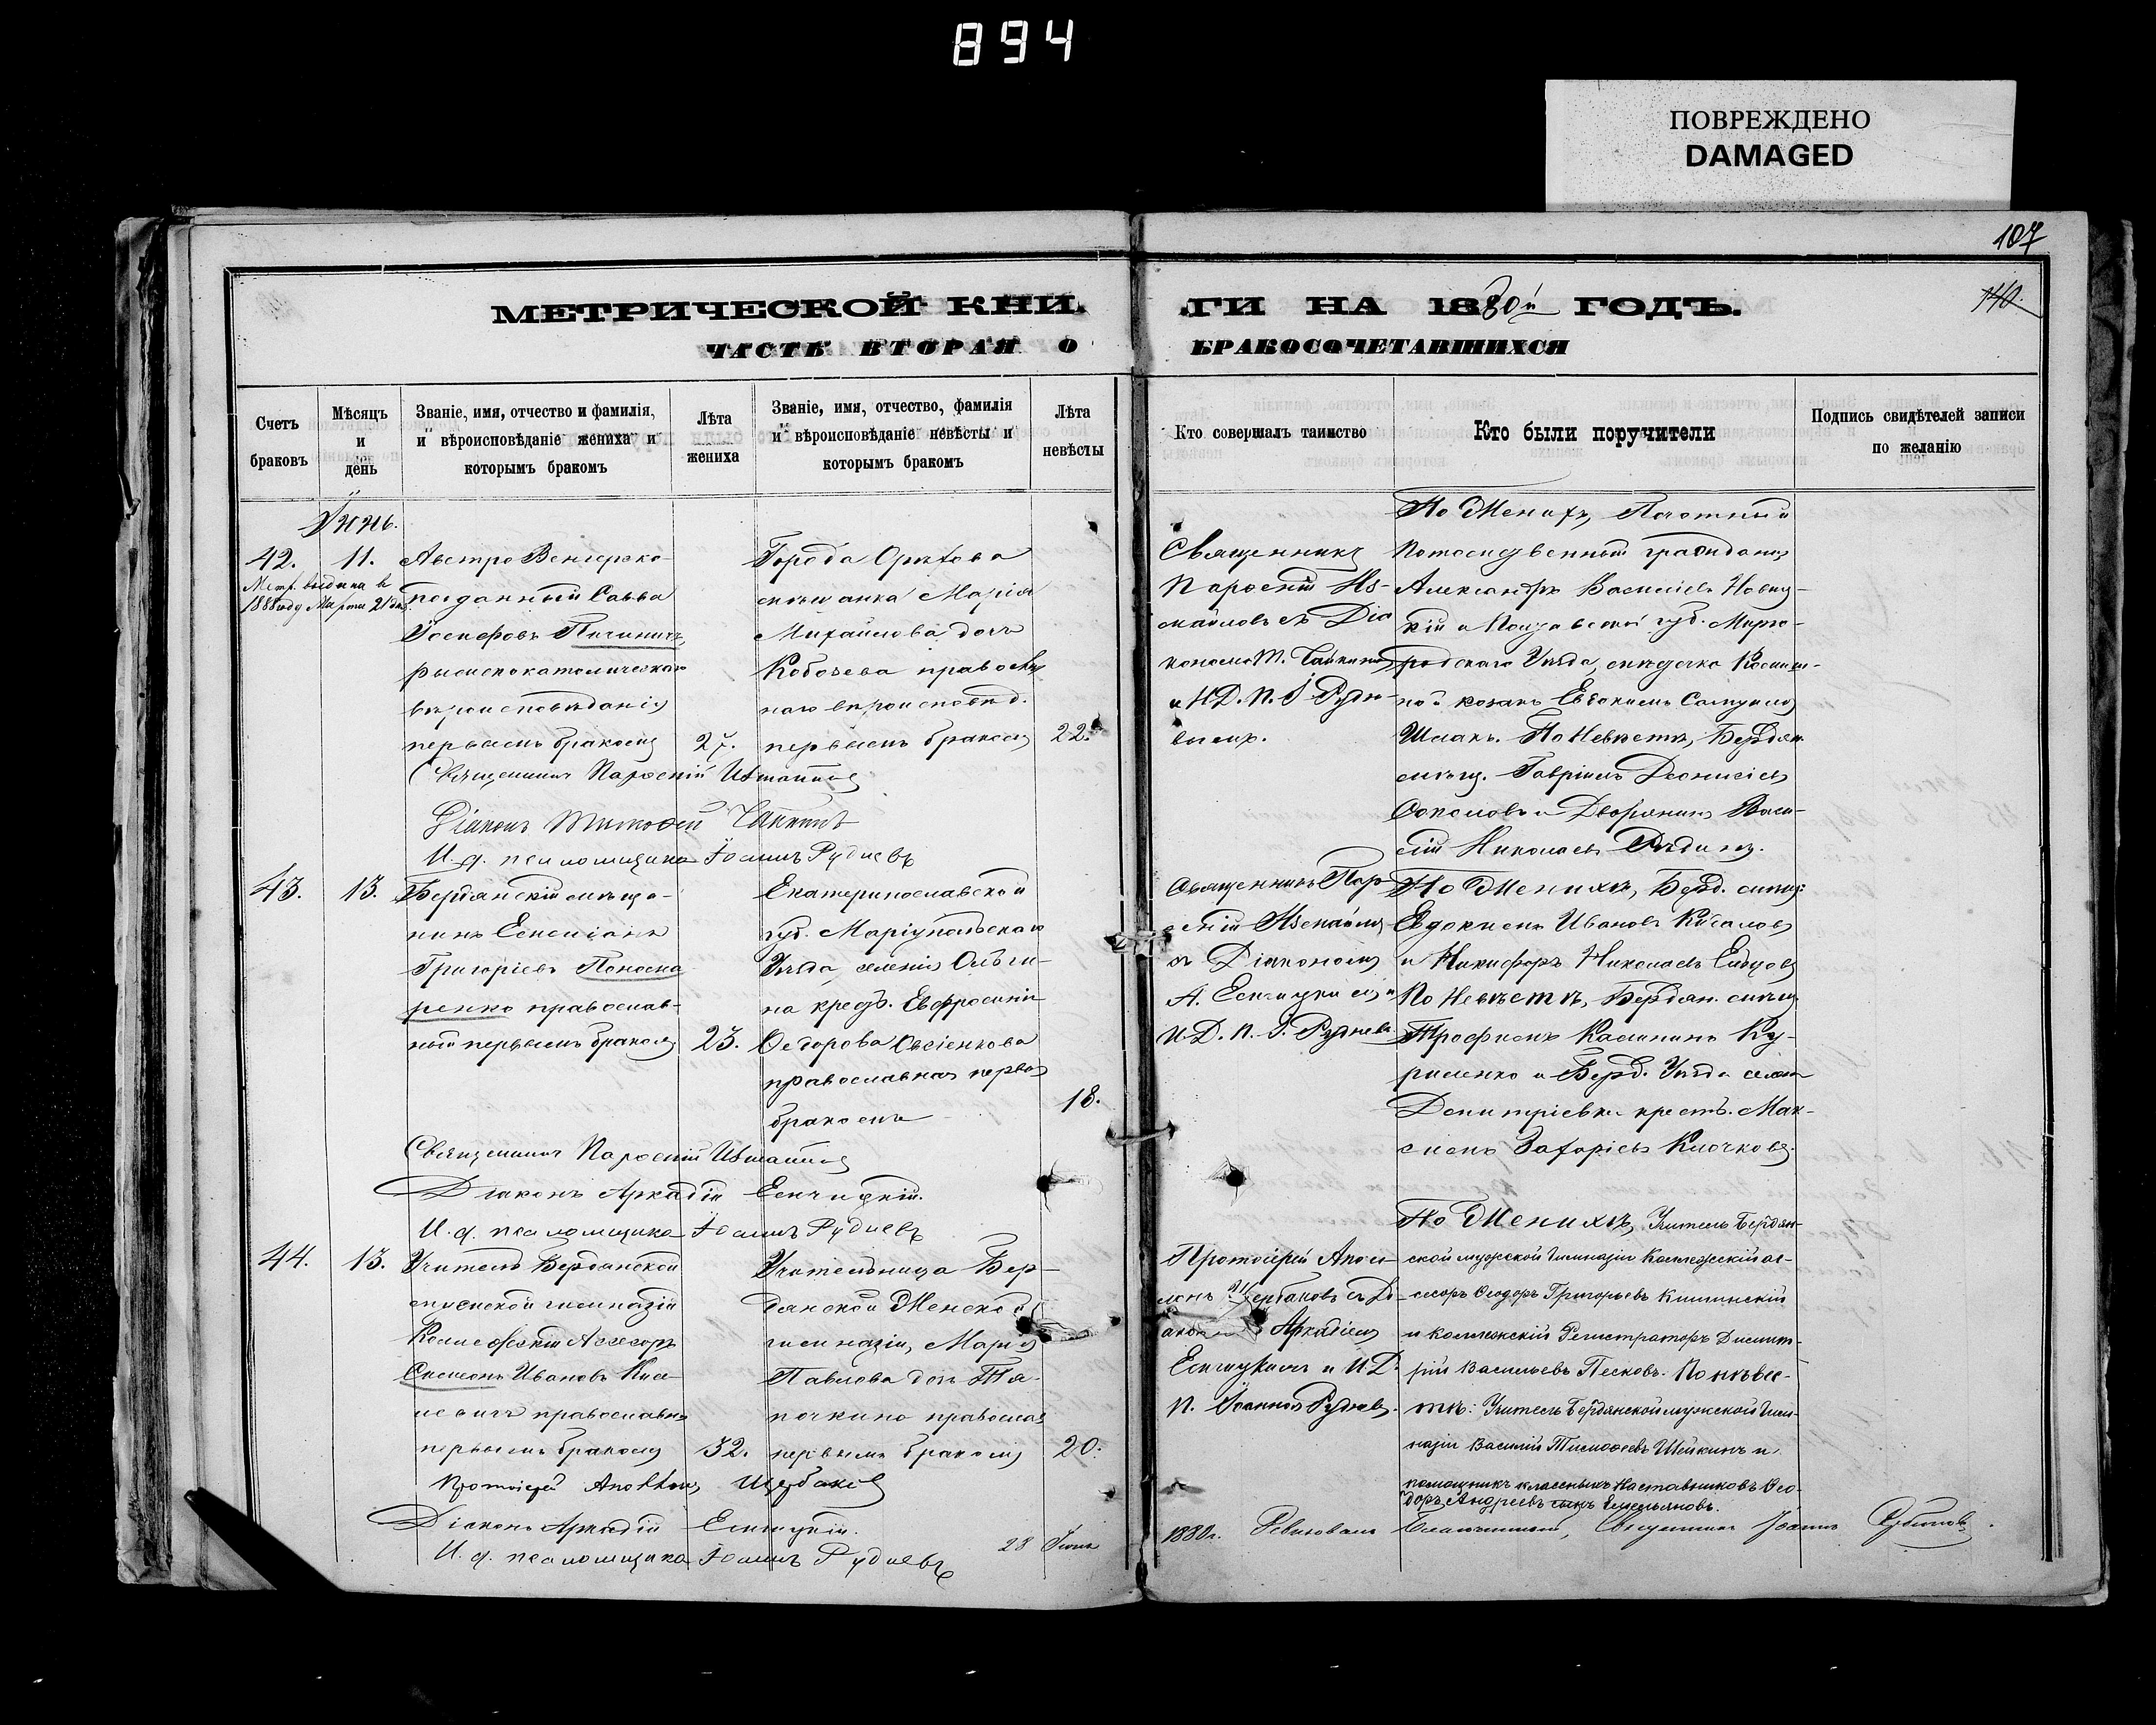 894
ПОВРЕЖДЕНО
DAMAGED
107
140.
МЕТРИЧЕСКОЙ КНИ
ГИ НА 1880й ГОДЪ.
ЧАСТЬ ВТОРАЯ О
БРАКОСОЧЕТАВШИХСЯ
Счетъ браковъ
Мѣсяцъ и день
Званіе, имя, отчество и фамилія,
и вѣроисповѣданіе жениха и
которымъ бракомъ
Лѣта
жениха
Званіе, имя, отчество, фамилія
и вѣроисповѣданіе невѣсты и
которымъ бракомъ
Лѣта
невѣсты
Кто совершалъ таинство
Кто были поручители
Подпись свидѣтелей записи
по желанію
42. 11.
Метр. выдана въ
1888 году Марта 21 дня
Австро Венгерско-
подданный Савва
Іосифовъ
римскокатолическаго
вѣроисповѣданія
первымъ бракомъ
27.
Города Орѣхова
мѣщанка Марія
Михайлова дочь
Кобозева православ
наго вѣроисповѣд.
первымъ бракомъ
22.
Священникъ
Пароеній Из-
майловъ съ Діа
кономъ Т. Чайкинымъ
и И.Д.П. І Рудне-
вымъ.
По Женихѣ, Почотный
Потомственный гражданинъ
Александръ Васильевъ Новиц-
кій и Полтавской губ. Мирго-
родскаго Уѣзда,
козакъ Евдокимъ Самуиловъ
Шпакъ. По Невѣстѣ, Бердян.
мѣщ. Гавріилъ Деонисіевъ
Соколовъ и Дворянинъ Васи-
лій Николаевъ
Священникъ Пароеній Измайловъ
Діаконъ Тимоѳей Чайкинъ
И. д. псаломщика Іоаннъ Рудневъ
43. 13.
Бердянскій мѣща-
нинъ
Григоріевъ Пономa
ренко православ-
ный первымъ бракомъ
23.
Екатеринославской
губ. Маріупольскаго
Уѣзда, селенія Ольги-
на крест. Евфросинія
Ѳедорова Овсіенкова
православная первымъ
бракомъ
18.
Священникъ Пар
ѳеній Измайловъ
съ Діакономъ
А. Есмицкимъ и
И.Д.П. І. Рудневъ
По Женихѣ, Берд. мѣщ:
Евдокимъ Ивановъ
и Никифоръ Николаевъ
По Невѣстѣ, Бердян. мѣщ.
Трофимъ Калининъ Ку-
риленко и Берд. Уѣзда селенія
Дмитріевки крестъ. Мак-
симъ Захаріевъ Клочковъ.
Священникъ Пароеній Измайловъ
Діаконъ Аркадій
И. д. псаломщика Іоаннъ Рудневъ
44. 13.
Учитель Бердянской
мужской гимназіи
Коллежскій Ассесоръ
Симеонъ Ивановъ
православный
первымъ бракомъ
32.
Учительница Бер-
дянской Женской
гимназіи, Марія
Павлова дочь Тя-
почкина православ
первымъ бракомъ
20.
Протоіерей Апол-
лонъ Щербаковъ съ Ді
акономъ Аркадіемъ
и И.Д.
П. Іоанномъ Рудневымъ.
По Женихѣ, Учитель Бердян-
ской мужской Гимназіи Коллежскій ас-
сесоръ Ѳеодоръ Григорьевъ
и Коллежскій Регистраторъ Димит-
рій Васильевъ Песковъ. По невѣс-
тѣ: Учитель Бердянской мужской Гим-
назіи Василій Тимоѳеевъ Шейкинъ и
помощникъ классныхъ Наставниковъ Ѳео-
доръ Андреевъ Емельяновъ.
Протоіерей Аполлонъ Щербаковъ
Діаконъ Аркадій
И. д. псаломщика Іоаннъ Рудневъ
28 Іюня
1880 г. Ревизовалъ Благочинный, Священникъ Іоаннъ